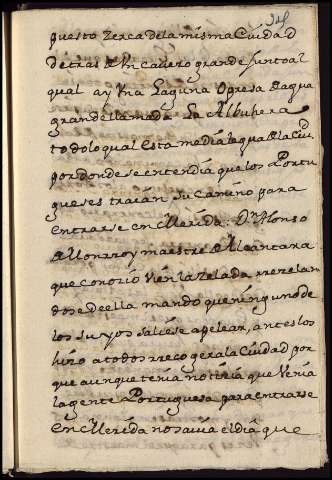 puesto zerca de la misma Ciudad
detras de Un cavezo grande Junto al
qual ay Una Laguna O presa de agua
grande llamada La Albuhera
todo lo qual esta media legua de la Ciud
por donde se entendia que los Portu
gueses traian su camino para
entrarse en Merida. Dn Alonso
de Monrroy maestre de Alcantara
que conozio Vien la Zelada rrezelan
dose de ella mando que ninguno de
los suyos saliese a pelear, antes los
hizo a todos rrecoger a la Ciudad por
que aunque tenia noticia que Venia
la gente Portuguesa para entrarse
en Merida no savia el dia que